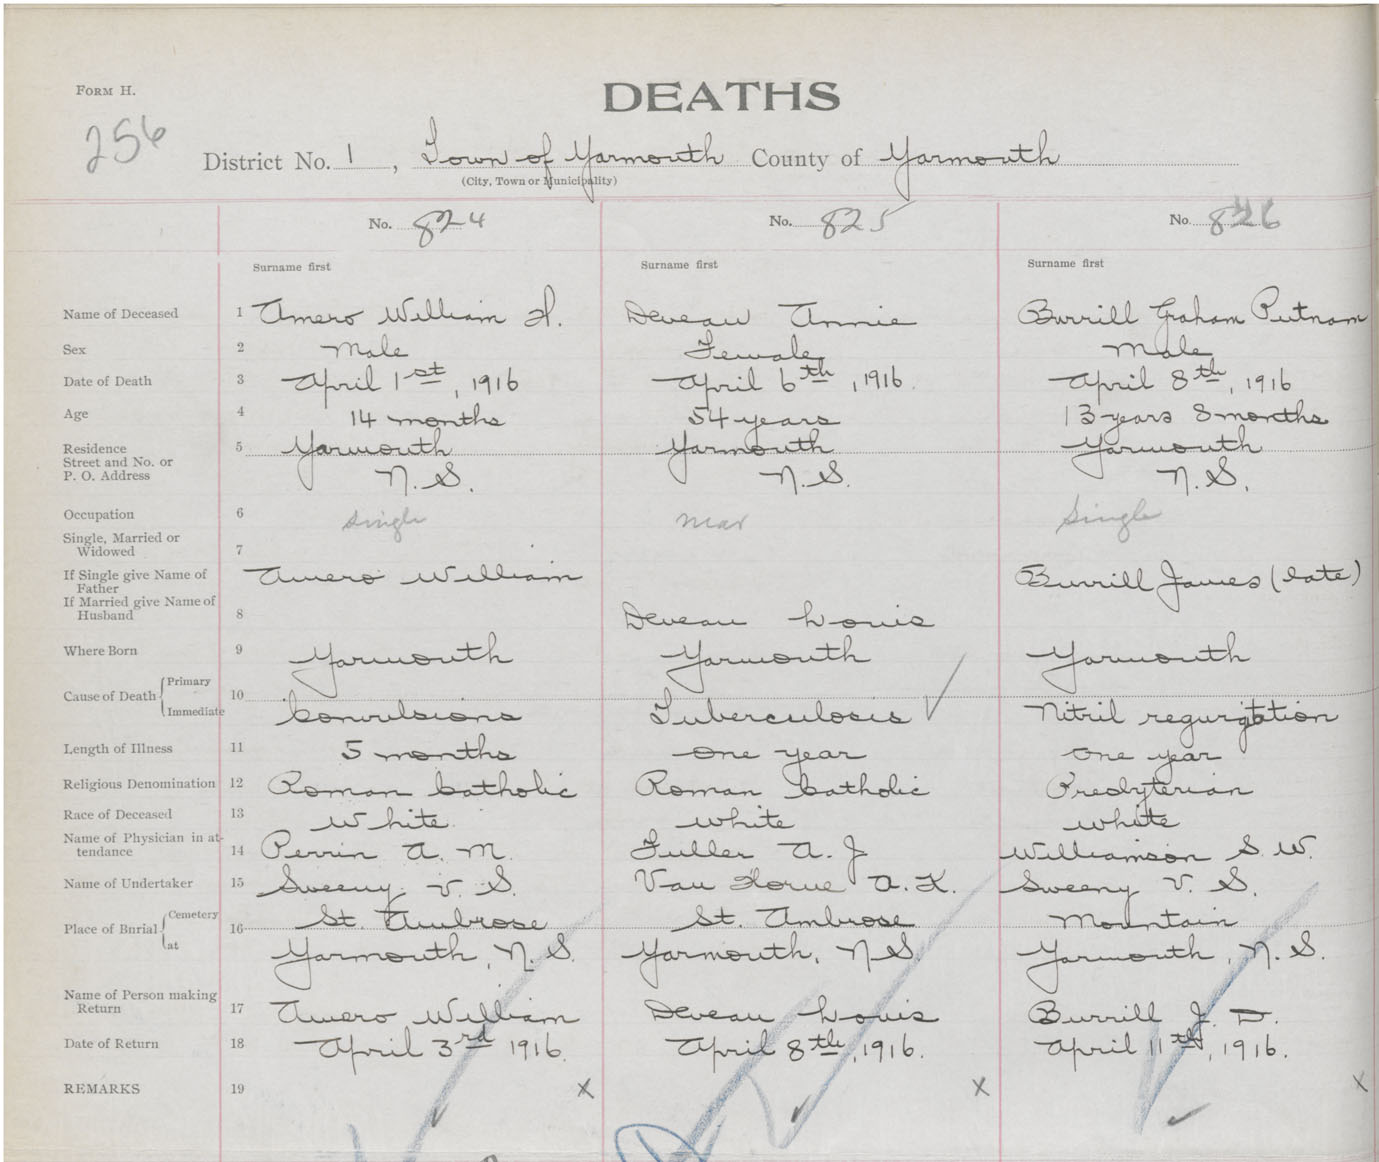 FORM H.
DEATHS
256
District No. 1, Town of Yarmouth County of Yarmouth
(City, Town or Municipality)
No. 824 No. 825 No. 826
Surname first Surname first Surname first
Name of Deceased 1 Amero William H. Deveau Annie Burrill Graham Putnam
Sex 2 Male Female Male
Date of Death 3 April 1st, 1916 April 6th, 1916. April 8th, 1916
Age 4 14 months 54 years 13 years 8 months
Residence 5 Yarmouth Yarmouth Yarmouth
Street and No. or
P. O. Address N.S. N.S. N.S.
Occupation 6 Single Mar Single
Single, Married or
Widowed 7
If Single give Name of
Father Amero William Burrill James (late)
If Married give Name of
Husband 8 Deveau Louis
Where Born 9 Yarmouth Yarmouth Yarmouth
Cause of Death Primary 10
Immediate Convulsions Tuberculosis Nitril regurgtation
Length of Illness 11 5 months one year one year
Religious Denomination 12 Roman Catholic Roman Catholic Presbyterian
Race of Deceased 13 White White White
Name of Physician in at-
tendance 14 Perrin A. M. Fuller A. J Williamson S. W.
Name of Undertaker 15 Sweeny V. S. Van Horne A. K. Sweeny V. S.
Place of Burial Cemetery 16 St. Ambrose St. Ambrose Mountain
at Yarmouth, N.S. Yarmouth, N.S. Yarmouth, N.S.
Name of Person making
Return 17 Amero William Deveau Louis Burrill J. D.
Date of Return 18 April 3rd 1916. April 8th, 1916. April 11th, 1916.
REMARKS 19 x x x